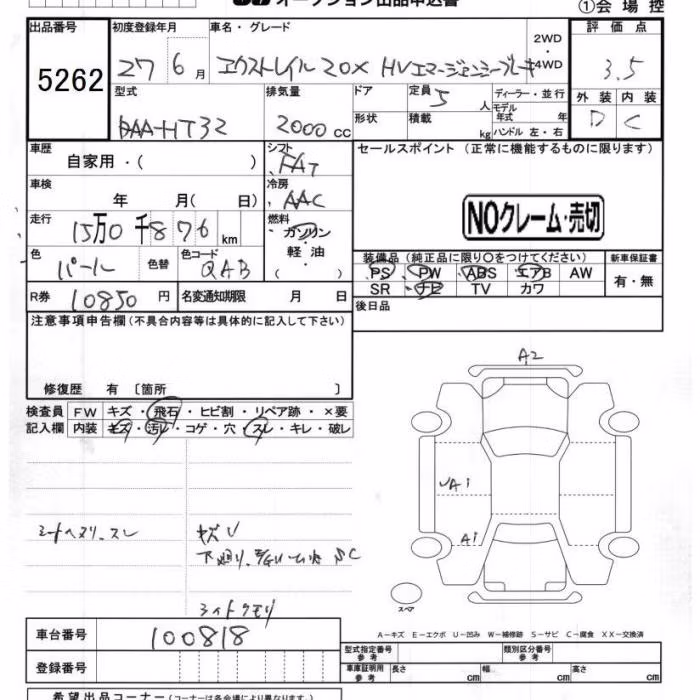 オークション出品申込書
①会場控
出品番号 初度登録年月 車名・グレード 2WD・4WD 評価点
5262 27 6月 エクストレイル 20X HVエマージェンシーブレーキ 3.5
型式 排気量 ドア 定員 5人 ディーラー・並行 外装 内装
DAA-HT32 2000cc 形状 積載 kg モデル年式 年 ハンドル 左・右 D C
車歴 自家用・( ) シフト FAT セールスポイント (正常に機能するものに限ります)
車検 年 月( 日) 冷房 AAC
NOクレーム・売切
走行 15万0千876km 燃料 ガソリン・軽油・( )
色 パール 色替 色コード QAB
装備品 (純正品に限り○をつけてください) 新車保証書
PS PW ABS エアB AW 有・無
SR ナビ TV カワ
R券 10850円 名変通知期限 月 日 後日品
注意事項申告欄 (不具合内容等は具体的に記入して下さい)
修復歴 有 〔箇所 〕
検査員記入欄 FW キズ・飛石・ヒビ割・リペア跡・×要
内装 キズ・汚レ・コゲ・穴・スレ・キレ・破レ
A2
UA1
A1
シートヘタリ、スレ
キズU
下廻り
SC
スペア
A-キズ E-エクボ U-凹み W-補修跡 S-サビ C-腐食 XX-交換済
車台番号 100818
登録番号
型式指定番号参考 類別区分番号参考
車庫証明用参考 長さ cm 幅 cm 高さ cm
希望出品コーナー (コーナーは各会場により異なります)